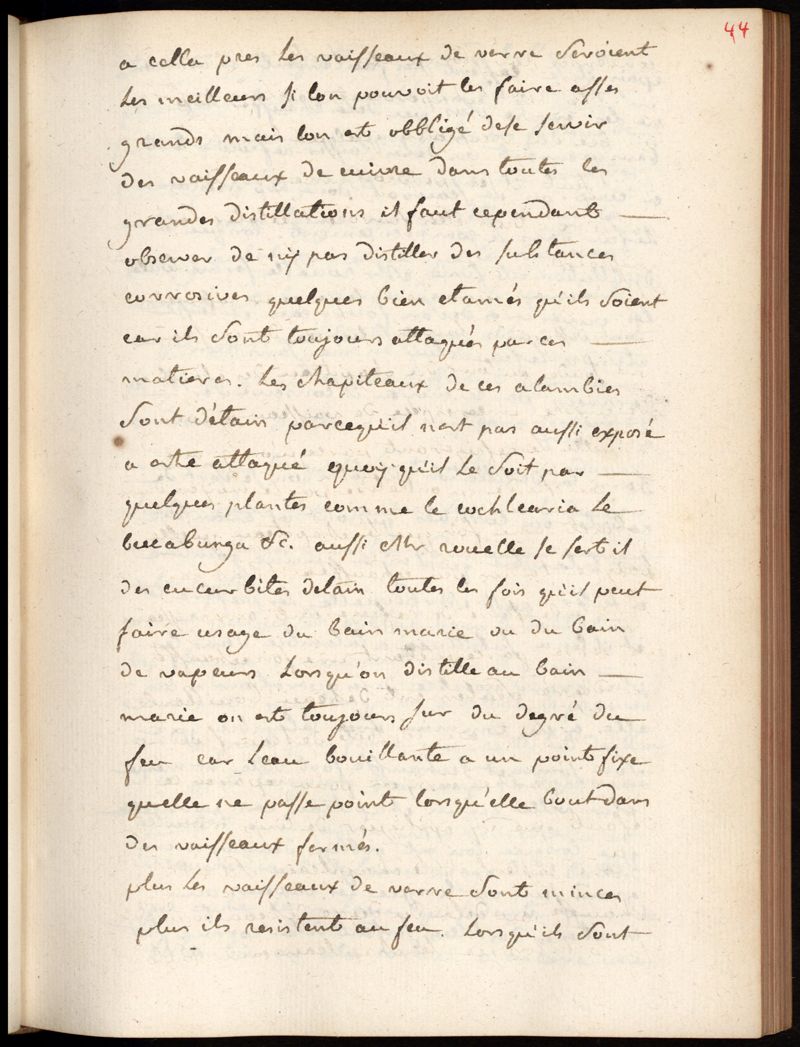 44
a cella pres les vaisseaux de verre seroient
les meilleurs si lon pouvoit les faire asses
grands mais lon est obbligé dese servir
des vaisseaux de cuivre dans toutes les
grandes distillations il faut cependant —
observer de ny pas distiller des substances
corrosives quelques bien etamés qu'ils soient
car ils sont toujours attaqués par ces —
matieres. Les chapiteaux de ces alambics
sont d'étain parcequ'il n'est pas aussi exposé
a estre attaqué quoy qu'il le soit par —
quelques plantes comme le cochlearia le
beccabunga &c. aussi Mr rouelle se sert il
des cucurbites detain toutes les fois qu'il peut
faire usage du bain marie ou du bain
de vapeurs lorsqu'on distille au bain —
marie on est toujours sur du degré du
feu car leau bouillante a un point fixe
quelle ne passe point lorsqu'elle bout dans
des vaisseaux fermés.
plus les vaisseaux de verre sont minces
plus ils resistent au feu. Lorsqu'ils sont